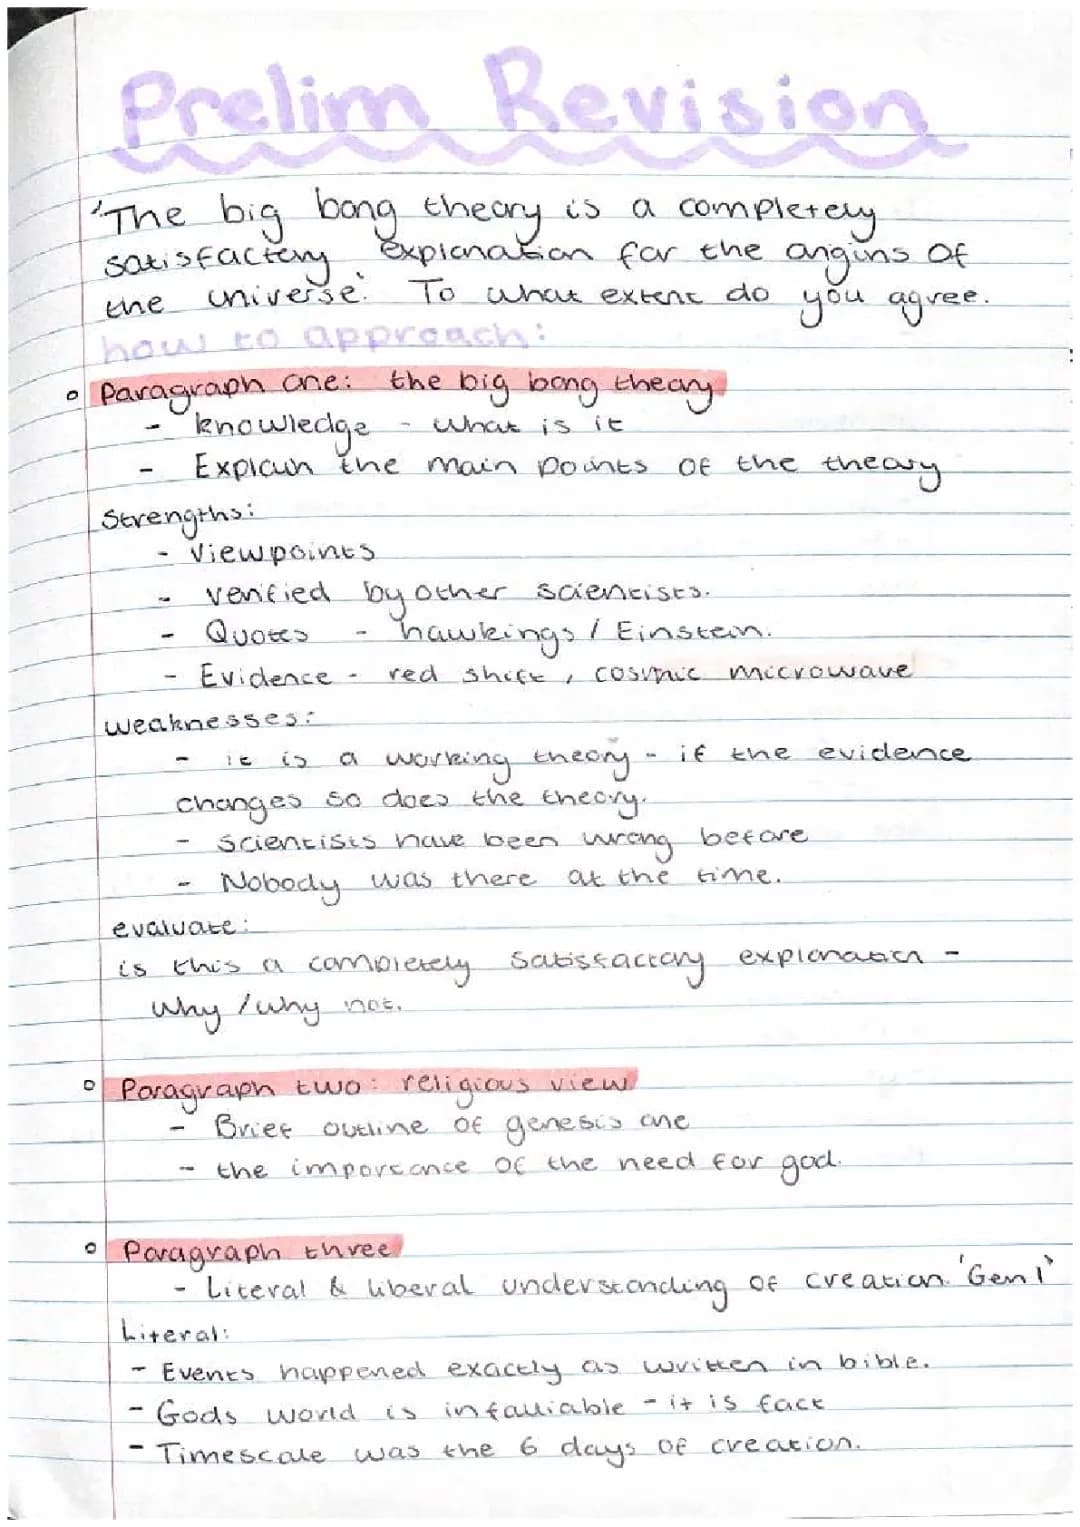 Prelim Revision
'The big bang theory is a completely
satisfactory explanation for the origins of
the universe'. To what extent do you agree.
how to approach:
Paragraph one: the big bang theory
- knowledge - what is it
- Explain the main points of the theory
Strengths:
- Viewpoints
- verified by other scientists.
- Quotes - hawkings / Einstein.
- Evidence - red shift, cosmic microwave
weaknesses:
- it is a working theory - if the evidence
changes so does the theory.
- Scientists have been wrong before
- Nobody was there at the time.
evaluate:
is this a completely satisfactory explanation -
Why / why not.
Paragraph two: religious view
- Brief outline of genesis one
- the importance of the need for god.
Paragraph three
- Literal & liberal understanding of creation 'Gen 1'
Literal:
- Events happened exactly as written in bible.
- Gods world is infalliable - it is fact
- Timescale was the 6 days of creation.